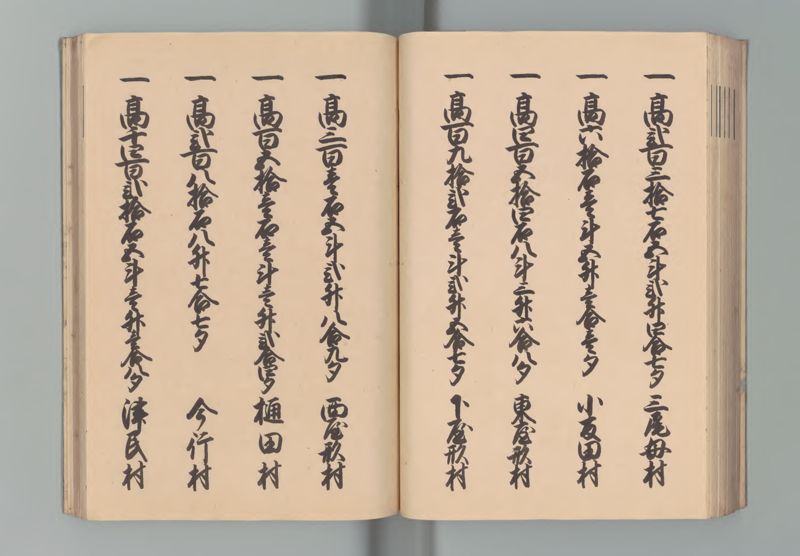 一高弐百三拾七石五斗弐升四合七夕三尾母村
一高六拾石壱斗五升三合壱夕小友田村
一高四百五拾四石八斗三升六合八夕東屋形村
一高百九拾弐石壱斗弐升五合七夕下屋形村
一高三百壱石五斗弐升八合九夕西屋形村
一高百五拾壱石壱斗壱升弐合四夕樋田村
一高弐百八拾石八升七合七夕今行村
一高千四百弐拾石五斗壱升三合八夕津民村